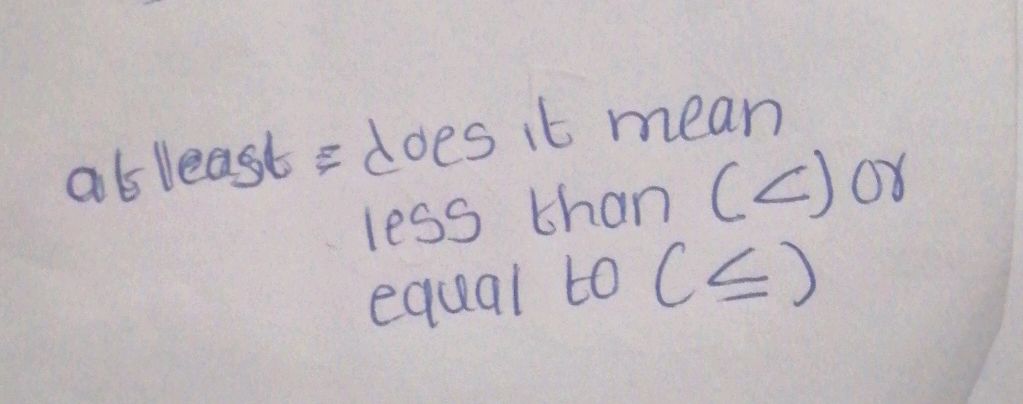 at least = does it mean
less than (<) or
equal to (≤)